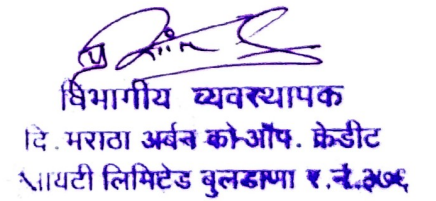 विभागीय व्यवस्थापक
दि. मराठा अर्बन को-ऑप. क्रेडीट
सायटी लिमिटेड बुलडाणा र.नं.३७६